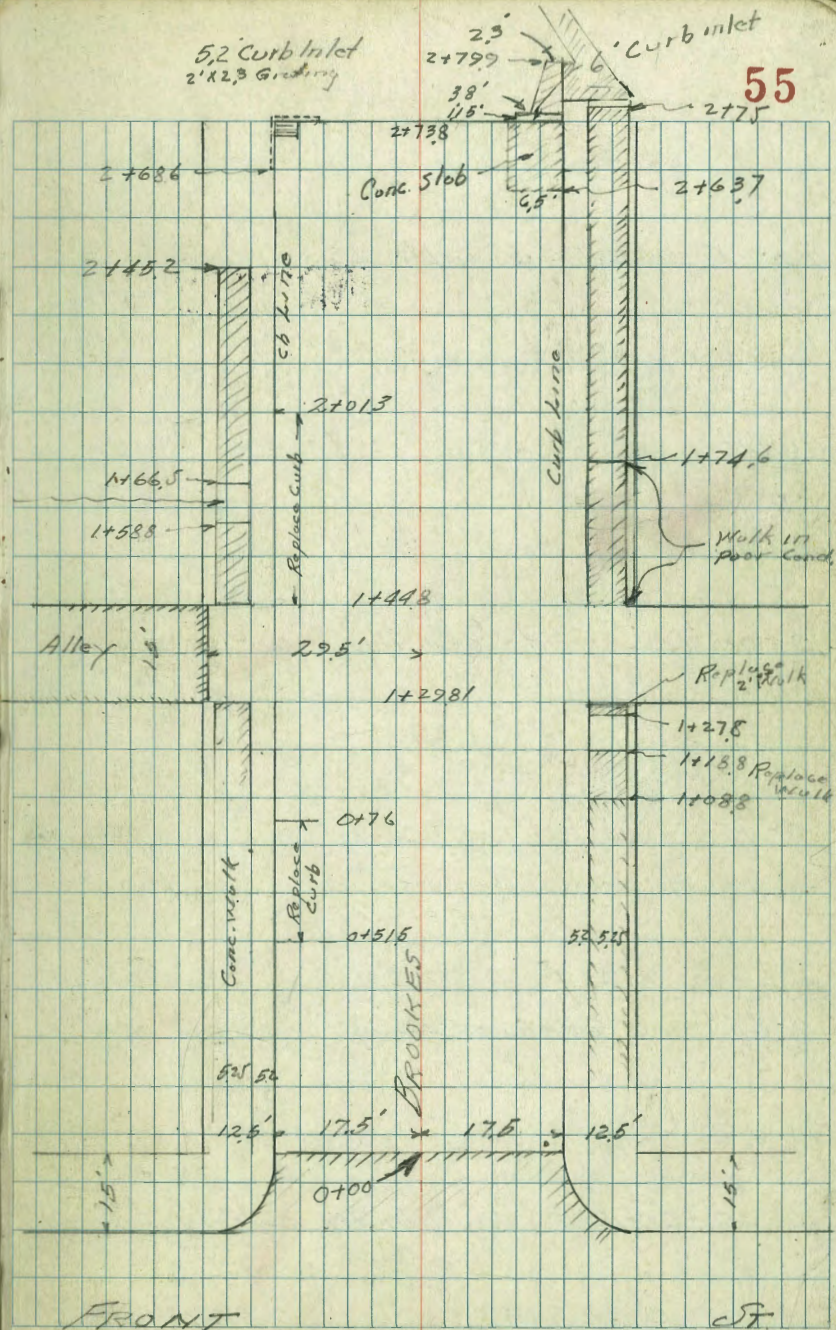 5.2' Curb Inlet
2' X 2.3 Grating
2.3'
2+79.9
6' Curb inlet
55
3.8'
1.15'
2+75
2+73.8
2+68.6
Conc. Slab
2+63.7
6.5'
2+45.2
Cb Line
2+01.3
Curb Line
1+74.6
1+66.5
Replace Curb
1+58.8
Walk in
poor Cond.
1+44.8
Alley 15'
29.5'
1+29.81
Replace
2' Walk
1+27.8
1+18.8 Replace
Walk
1+08.8
0+76
Replace
Curb
Conc. Walk
0+51.5
5.2 5.25
BROOKES
5.25 5.2
12.5' 17.5' 17.5 12.5'
0+00
15' 15'
FRONT ST